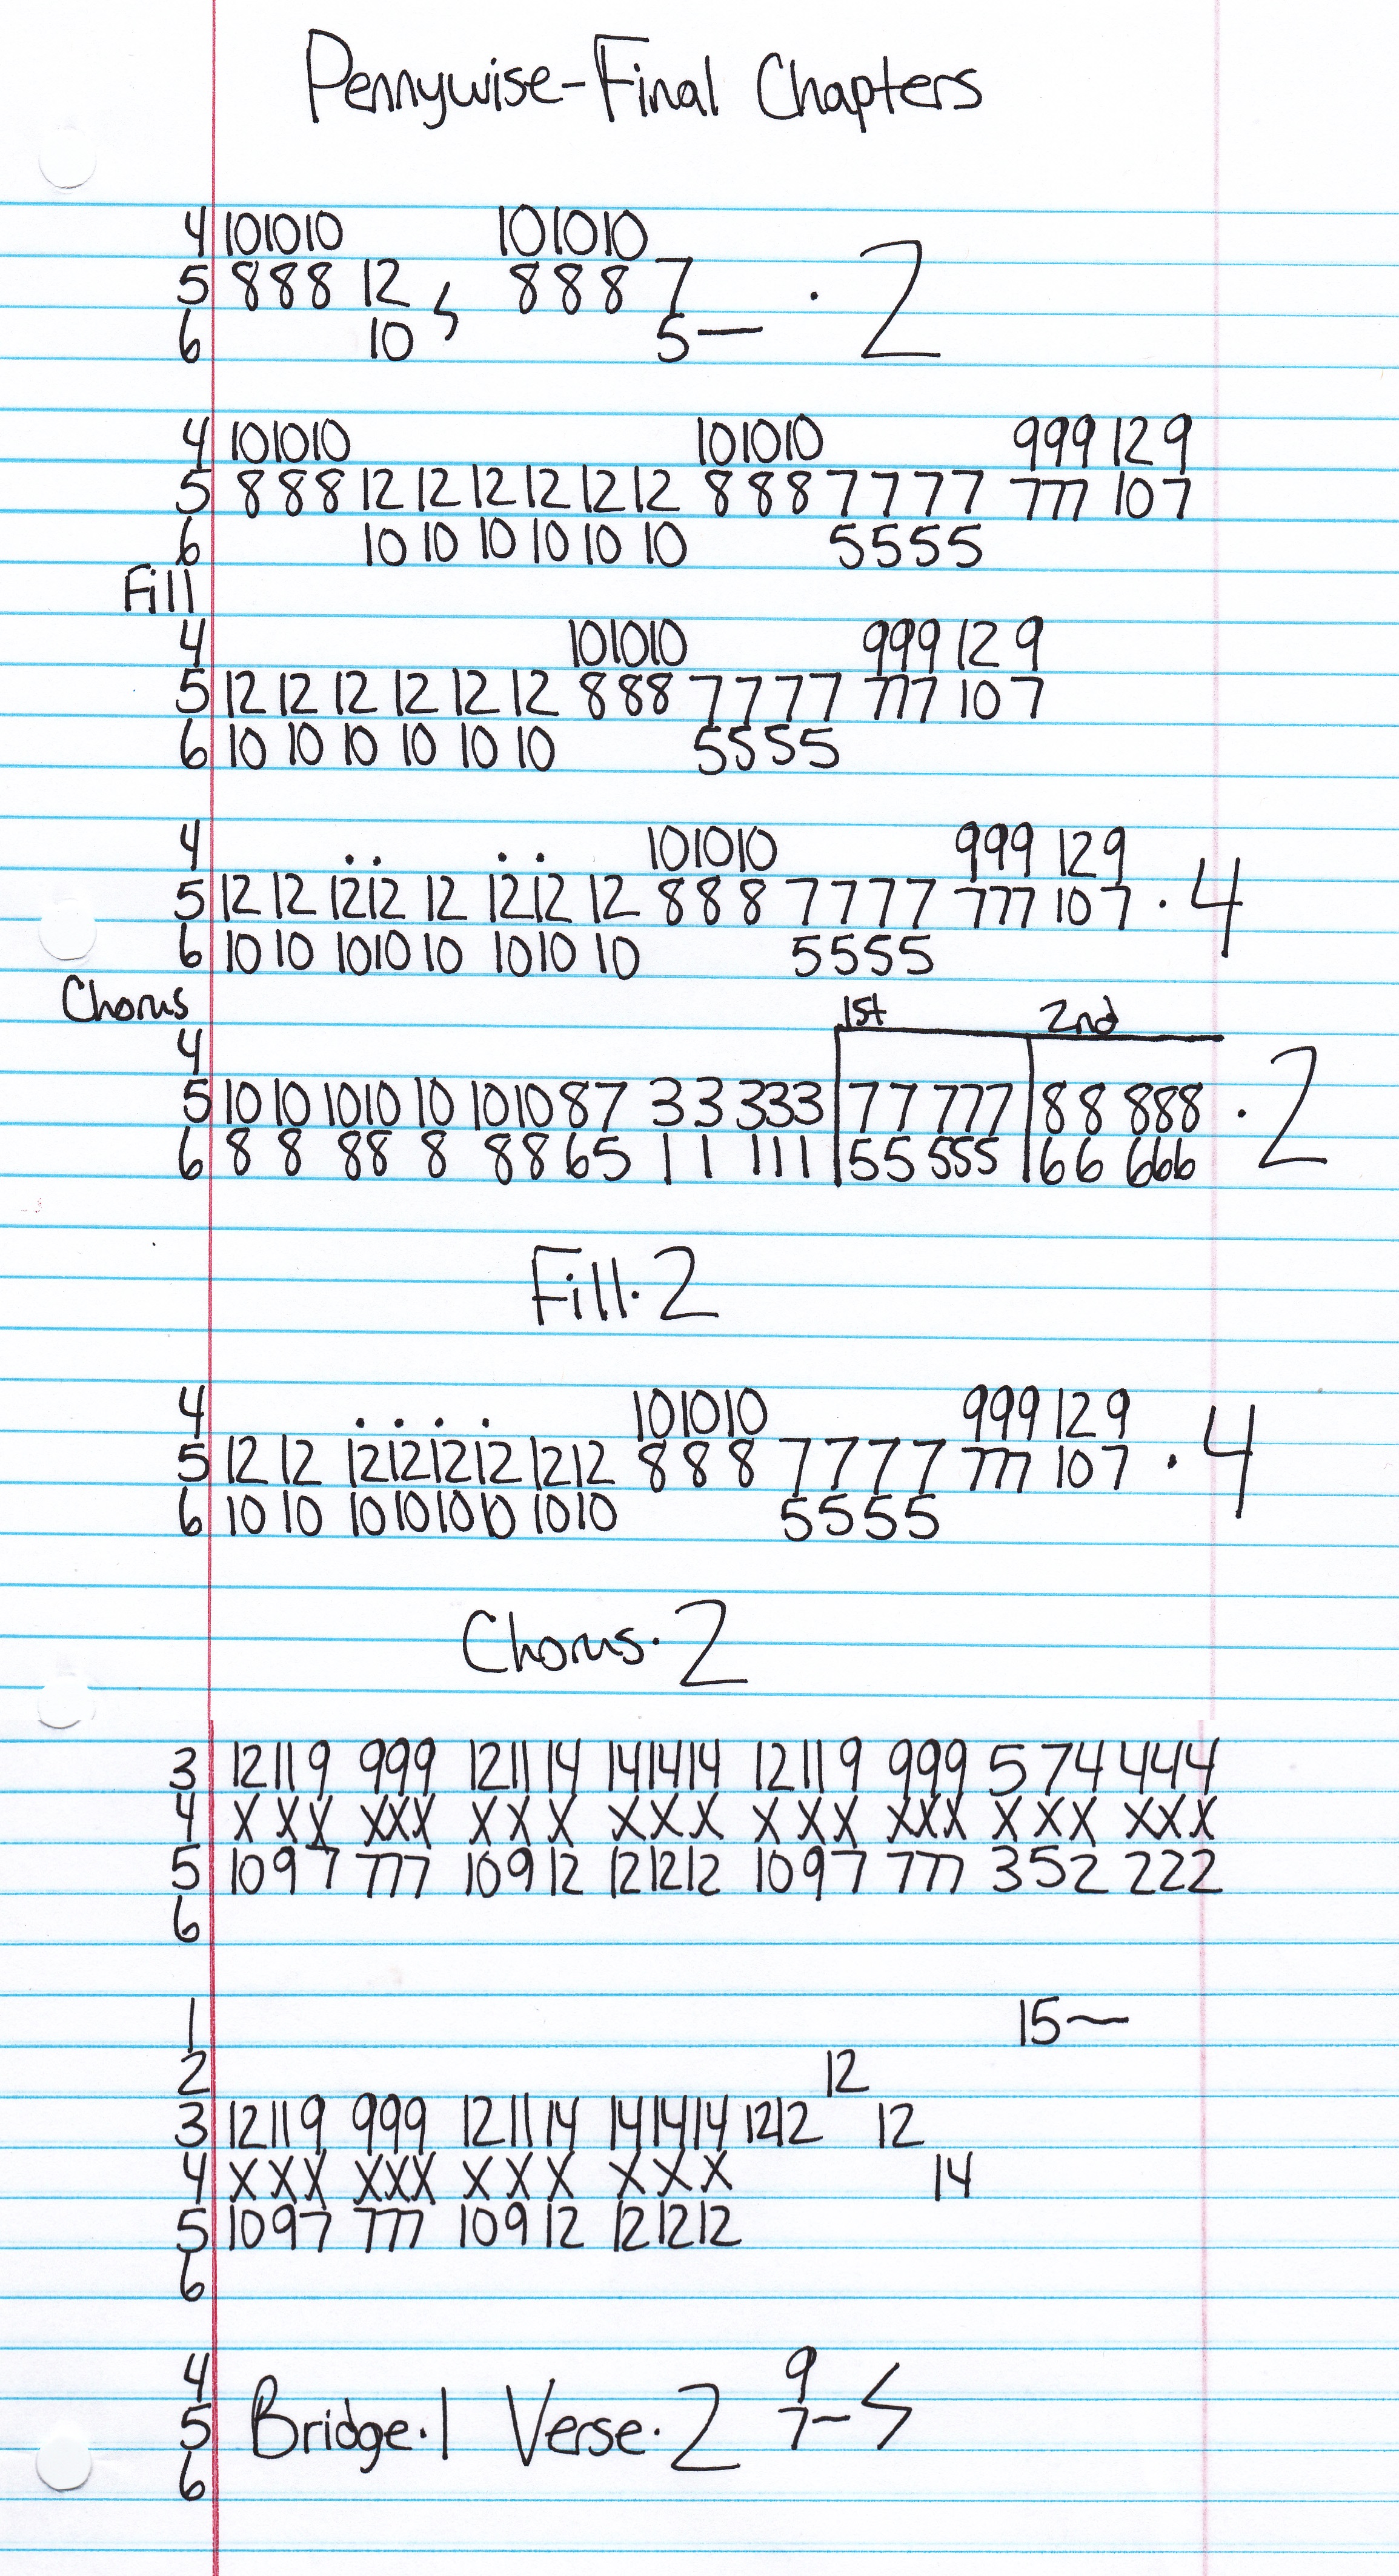 Pennywise-Final Chapters
4 101010 101010
5 8 8 8 12 8 8 8 7 · 2
6 10 5—
4 101010 101010 999 12 9
5 8 8 8 12 12 12 12 12 12 8 8 8 7 7 7 7 777 10 7
6 10 10 10 10 10 10 5 5 5 5
Fill
4 101010 999 12 9
5 12 12 12 12 12 12 8 8 8 7 7 7 7 777 10 7
6 10 10 10 10 10 10 5 5 5 5
4 . . . . 101010 999 12 9
5 12 12 1212 12 1212 12 8 8 8 7 7 7 7 777 10 7 · 4
6 10 10 1010 10 1010 10 5 5 5 5
Chorus 1st 2nd
4
5 10 10 1010 10 1010 8 7 3 3 333 77 777 8 8 888 · 2
6 8 8 88 8 88 6 5 1 1 111 55 555 66 666
Fill·2
4 . . . . 101010 999 12 9
5 12 12 12121212 1212 8 8 8 7 7 7 7 777 10 7 · 4
6 10 10 10101010 1010 5 5 5 5
Chorus·2
3 12119 999 121114 141414 12119 999 574 444
4 XXX XXX XXX XXX XXX XXX XXX XXX
5 1097 777 10912 121212 1097 777 352 222
6
1 15~
2 12
3 12119 999 121114 141414 1212 12
4 XXX XXX XXX XXX 14
5 1097 777 10912 121212
6
4 9
5 Bridge·1 Verse·2 7~
6